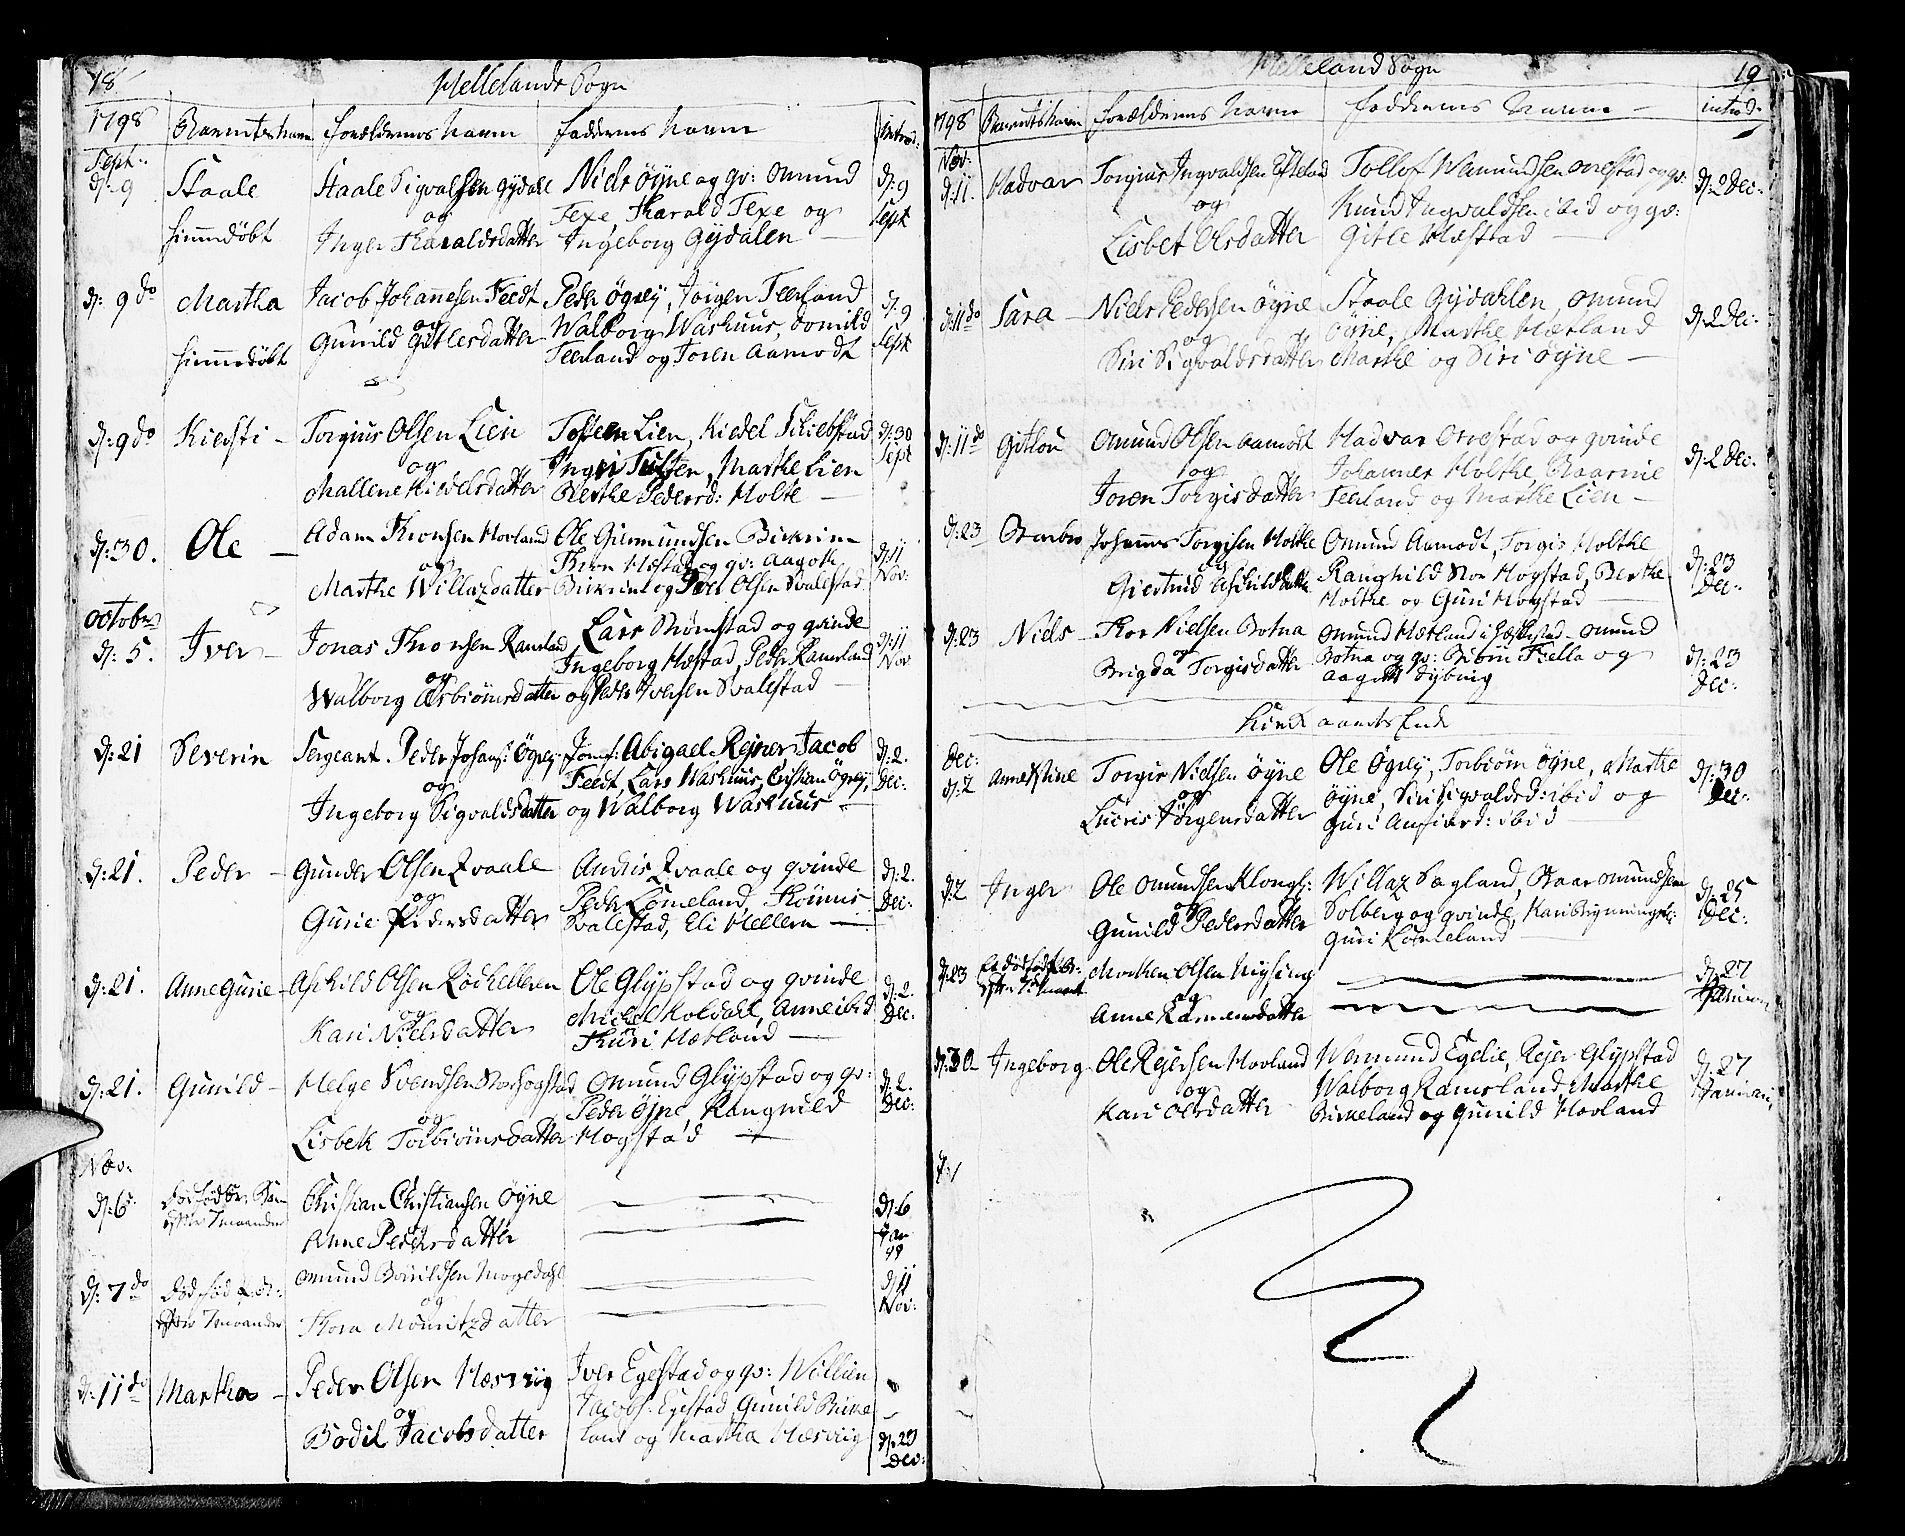 18
Hellelands Sogn
1798
Barnets Navn
Forældrenes Navn
Faddernes Navn
Introd:
Sept:
d: 9
Staale
hiemmedøbt
Staale Sigvalsen Gydale
og
Inger Haraldsdatter
Niels Øyne og qv: Omund
Texe Harald Texe og
Ingeborg Gydalen
d: 9
Sept
d: 9 do
Martha
hiemmedøbt
Jacob Johannesen Feedt
og
Gunild Gitlesdatter
Peder Øgrey, Jørgen Teerland
Walborg Washuus, Gomild
Teerland og Joren Aamodt
d: 9
Sept
d: 9 do
Kiersti
Torgius Olsen Lien
og
Mallene Kieldsdatter
Tosteen Lien, Kiedel Skiebstad
Marthe Lien
Berthe Pedersd: Holte
d: 30
Sept
d: 30.
Ole
Adam Thorsen Hovland
og
Marthe Willazdatter
Ole Giermundsen Birkrim
Thor Hæstad og qv: Aagoth
Birkrim og Tore Olsen Svalestad
d: 11
Nov:
October
d: 5.
Iver
Jonas Thorsen Ramsland
og
Walborg Asbiørnsdatter
Lars Strømstad og qvinde
Ingeborg Hæstad, Peder Ramsland
og Peder Iversen Svalestad
d: 11
Nov
d: 21
Severin
Sergeant Peder Johans: Øgrey
og
Ingeborg Sigvaldsdatter
Jomf: Abigael Rejner Jacob
Feedt, Lars Washuus, Cristian Øgrey,
og Walborg Washuus
d: 2.
Dec:
d: 21.
Peder
Gunder Olsen Qvaale
og
Gurie Pedersdatter
Andris Qvaale og qvinde
Peder Lomeland, Thommis
Svalestad, Eli Hellern
d: 2.
Dec:
d: 21.
Anne Gurie
Aschild Olsen Rødhelleren
og
Kari Nielsdatter
Ole Glypstad og qvinde
Michel Koldahl, Anne ibid
Thuri Hætland
d: 2.
Dec:
d: 21.
Gunild
Helge Svendsen Storhogstad
og
Lisbeth Torbiørnsdatter
Omund Glypstad og qv:
Peder Øyne, Rangnild
Hogstad
d: 2.
Dec:
Nov:
d: 6.
Dødfødt Barn
efter 7 maander
Christian Christiansen Øyne
og
Anne Pedersdatter
d: 6
Jan
99
d: 7 do
Dødfød
efter 7 maander
Omund Børildsen Mogedahl
og
Thora Mouritzdatter
d: 11
Nov:
d: 11 do
Martha
Peder Olsen Hæsviig
og
Bodil Jacobsdatter
Iver Egestad og qv: Willien
Jacobs: Egestad, Gunild Birke
land og Martha Hæsviig
d: 23
Dec:
Helleland Sogn
19
1798
Barnets Navn
Forældrenes Navn
Faddernes Navn
introd:
Nov:
d: 11.
Hadvar
Torgius Ingvaldsen Efteland
og
Lisbet Olsdatter
Tollof Wemundsen Orrestad og qv:
Knud Ingvaldsen ibid og qv:
Gitle Hæstad
d: 2 Dec:
d: 11 do
Sara
Niels Pedersen Øyne
og
Siri Sigvaldsdatter
Staale Gydahlen, Omund
Øyne, Marthe Hæstand
Marthe og Siri Øyne
d: 2 Dec:
d: 11 do
Gitlou
Omund Olsen Aamodt
og
Joren Torgisdatter
Hadvar Orrestad og qvinde
Johannes Holthe, Raarnie
Teerland og Marthe Lien
d: 2 Dec.
d: 23
Barbro
Johannes Torgisen Holthe
og
Giertrud Aschildsdatter
Omund Aamodt, Torgis Holthe
Ranghild Stor Hogstad, Berthe
Holthe og Guri Hogstad
d: 23
Dec:
d: 23
Niels
Thor Nielsen Botna
og
Brigda Torgisdatter
Omund Hætland i Heskestad Omund
Botna og qv: Bibiri Fiella og
Aagot Dybing
d: 23
Dec:
Kirke aarets Ende
Dec:
d: 2
Anne Stine
Torgir Nielsen Øyne
og
Lucris Jørgensdatter
Ole Øgrey, Torbiørn Øyne, Marthe
Øyne, Siri Sigvaldsd: ibid og
Guri Ansteensd: ibid
d: 30
Dec:
d: 2
Inger
Ole Omundsen Klongl:
og
Gunild Pedersdatter
Willaz Sagland, Baar Omundsen
Solberg og qvinde, Kari
Guri Lomeland
d: 25
Dec:
d: 23
Morthen Olsen Nysing
og
Anne
d: 27
d: 30
Ingeborg
Ole Rejersen Hovland
og
Kari Olsdatter
Wermund Egelie, Rejer Glypstad
Walborg Ramsland Marthe
Birkeland og Gunild Hovland
d: 27
Januari